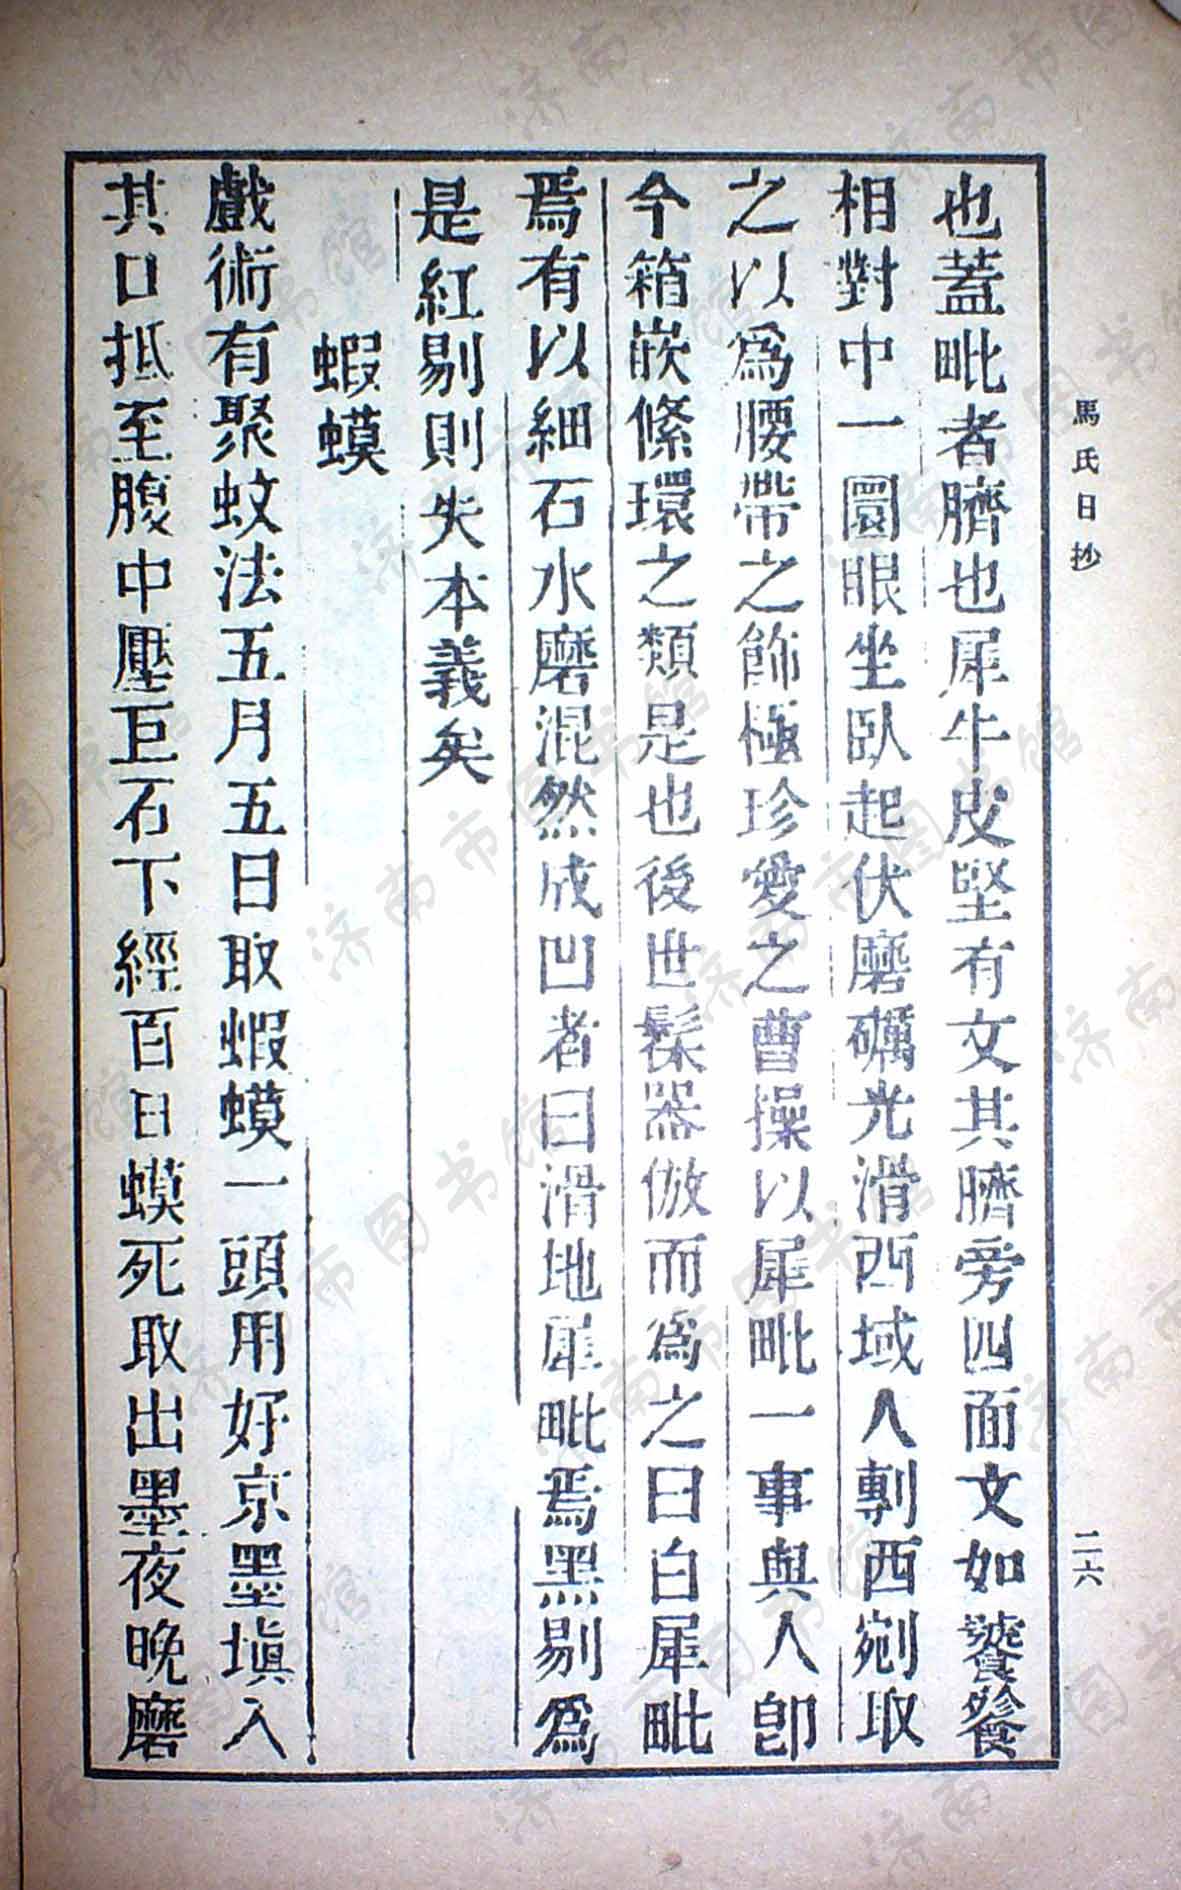 馬氏日抄
二六
也蓋毗者臍也犀牛皮堅有文其臍旁四面文如饕餮
相對中一圜眼坐臥起伏磨礪光滑西域人剸西剜取
之以為腰帶之飾極珍愛之曹操以犀毗一事與人卽
今箱嵌絛環之類是也後世髹器倣而為之曰白犀毗
焉有以細石水磨混然成凹者曰滑地犀毗焉黑剔為
是紅剔則失本義矣
蝦蟆
戲術有聚蚊法五月五日取蝦蟆一頭用好京墨塡入
其口抵至腹中壓巨石下經百日蟆死取出墨夜晚磨
济南市图书馆